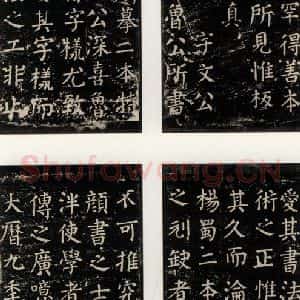 罕得善本
所見惟板
真
字文公
魯公所書
摹二本特
公深喜魯
字樣尤致
其字樣而
之工非止
愛其書法
術之正惟
其久而淪
楊蜀二本
之刓缺者
不可推究
顏書之士
泮使學者
傳之廣噫
大曆九季
Shufawang.CN